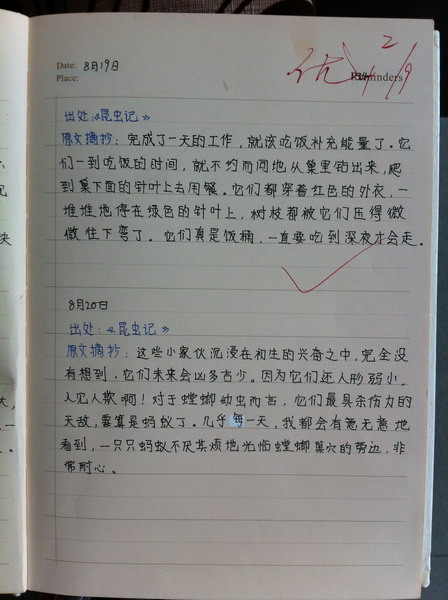 Date: 8月19日
Place:
优
2/9
Reminders
出处:《昆虫记》
原文摘抄:完成了一天的工作,就该吃饭补充能量了。它
们一到吃饭的时间,就不约而同地从巢里钻出来,爬
到巢下面的针叶上去用餐。它们都穿着红色的外衣,一
堆堆地停在绿色的针叶上,树枝都被它们压得微
微往下弯了。它们真是饭桶,一直要吃到深夜才会走。
8月20日
出处:《昆虫记》
原文摘抄:这些小家伙沉浸在初生的兴奋之中,完全没
有想到,它们未来会凶多吉少。因为它们还人形弱小,
人见人欺啊!对于螳螂幼虫而言,它们最具杀伤力的
天敌,要算是蚂蚁了。几乎每一天,我都会有意无意地
看到,一只只蚂蚁不厌其烦地光临螳螂巢穴的旁边,非
常耐心。